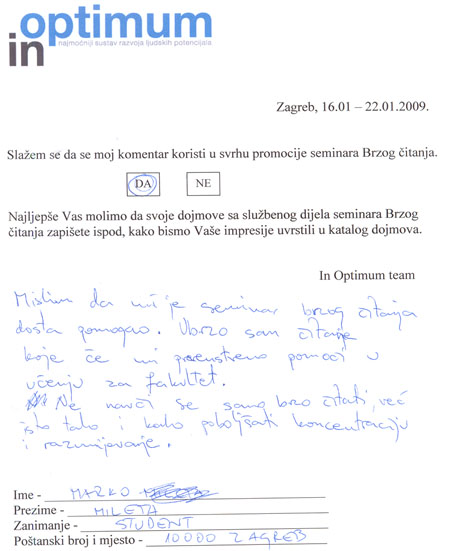 in optimum
najmoćniji sustav razvoja ljudskih potencijala
Zagreb, 16.01 – 22.01.2009.
Slažem se da se moj komentar koristi u svrhu promocije seminara Brzog čitanja.
DA NE
Najljepše Vas molimo da svoje dojmove sa službenog dijela seminara Brzog
čitanja zapišete ispod, kako bismo Vaše impresije uvrstili u katalog dojmova.
In Optimum team
Mislim da mi je seminar brzog čitanja
dosta pomogao. Ubrzo sam čitanje
koje će mi prvenstveno pomoći u
učenju za fakultet.
Ne nauči se samo brzo čitati, već
isto tako i kako poboljšati koncentraciju
i razumijevanje.
Ime - MARKO
Prezime - MILETA
Zanimanje - STUDENT
Poštanski broj i mjesto - 10000 ZAGREB